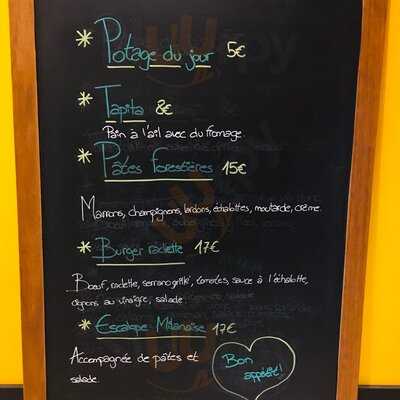 * Potage du jour 5€
* Tapita 8€
Pain à l'ail avec du fromage.
* Pâtes Forestières 15€
Marrons, champignons, lardons, échalottes, moutarde, crème.
* Burger raclette 17€
Bœuf, raclette, serrano grillé, tomates, sauce à l'échalotte,
oignons au vinaigre, salade.
* Escalope Milanaise 17€
Accompagnée de pâtes et
salade.
Bon
appétit!